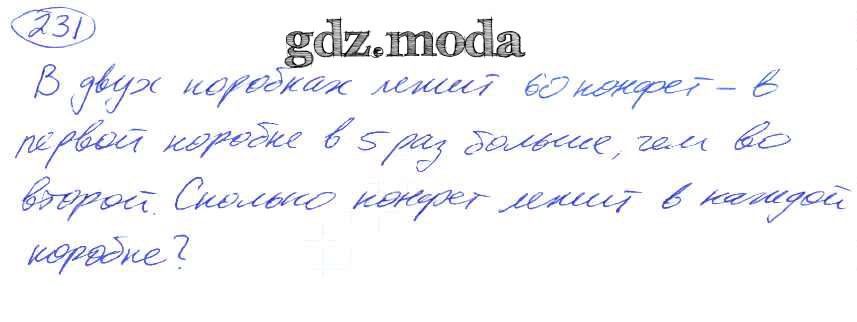 231
gdz.moda
В двух коробках лежит 60 конфет - в
первой коробке в 5 раз больше, чем во
второй. Сколько конфет лежит в каждой
коробке?